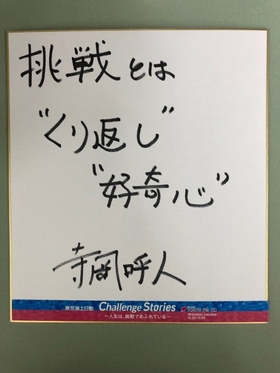 挑戦とは
"くり返し"
"好奇心"
寺岡呼人
東京海上日動 Challenge Stories
～人生は、挑戦であふれている～